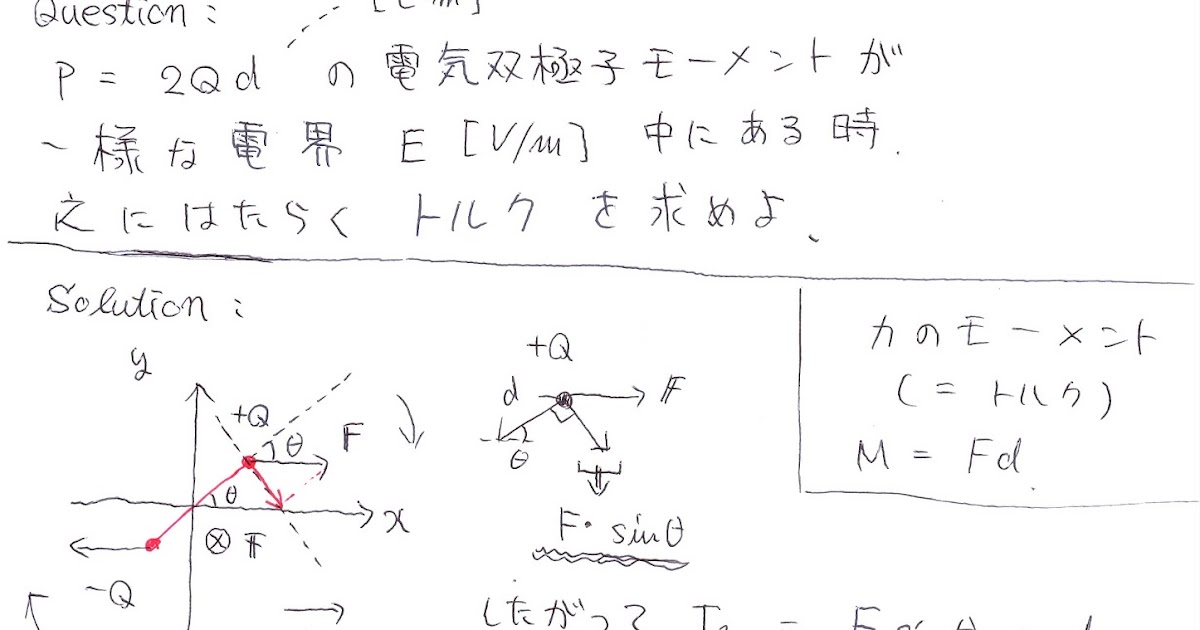 Question :
[C m]
P = 2Qd の電気双極子モーメントが
一様な電界 E [V/m] 中にある時.
之にはたらく トルク を求めよ、
Solution :
力のモーメント
(= トルク)
M = Fd
y
+Q
θ
F
θ
x
⊗
-Q
+Q
d
F
θ
F・sinθ
したがって